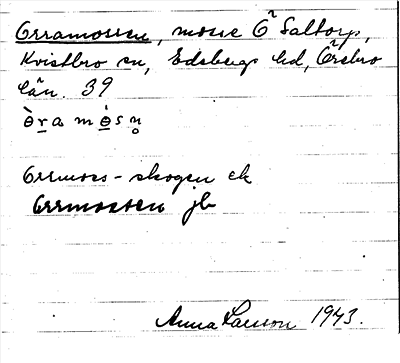 Orramossen, mosse Ö Saltorp,
Kvistbro sn, Edsbergs hd, Örebro
län. 39
òra mòsn̥
Orrmoss-skogen ek
Orrmossen jb
Anna Larsson 1943.